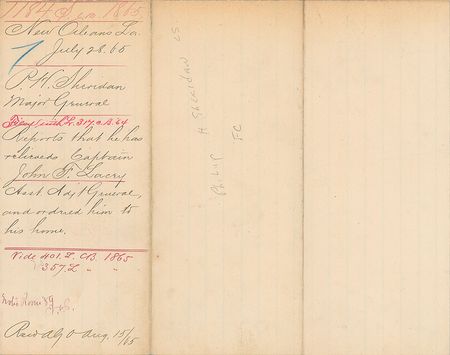 1184 1865
New Orleans La.
July 28. 65
P. H. Sheridan
Major General
Reports that he has
relieved Captain
John F. Lacey
Asst Adjt General,
and ordered him to
his home.
Vide 401. L. CB. 1865
357. L " "
Recd AGO Aug. 15/65
PHILIP H SHERIDAN CS
FC